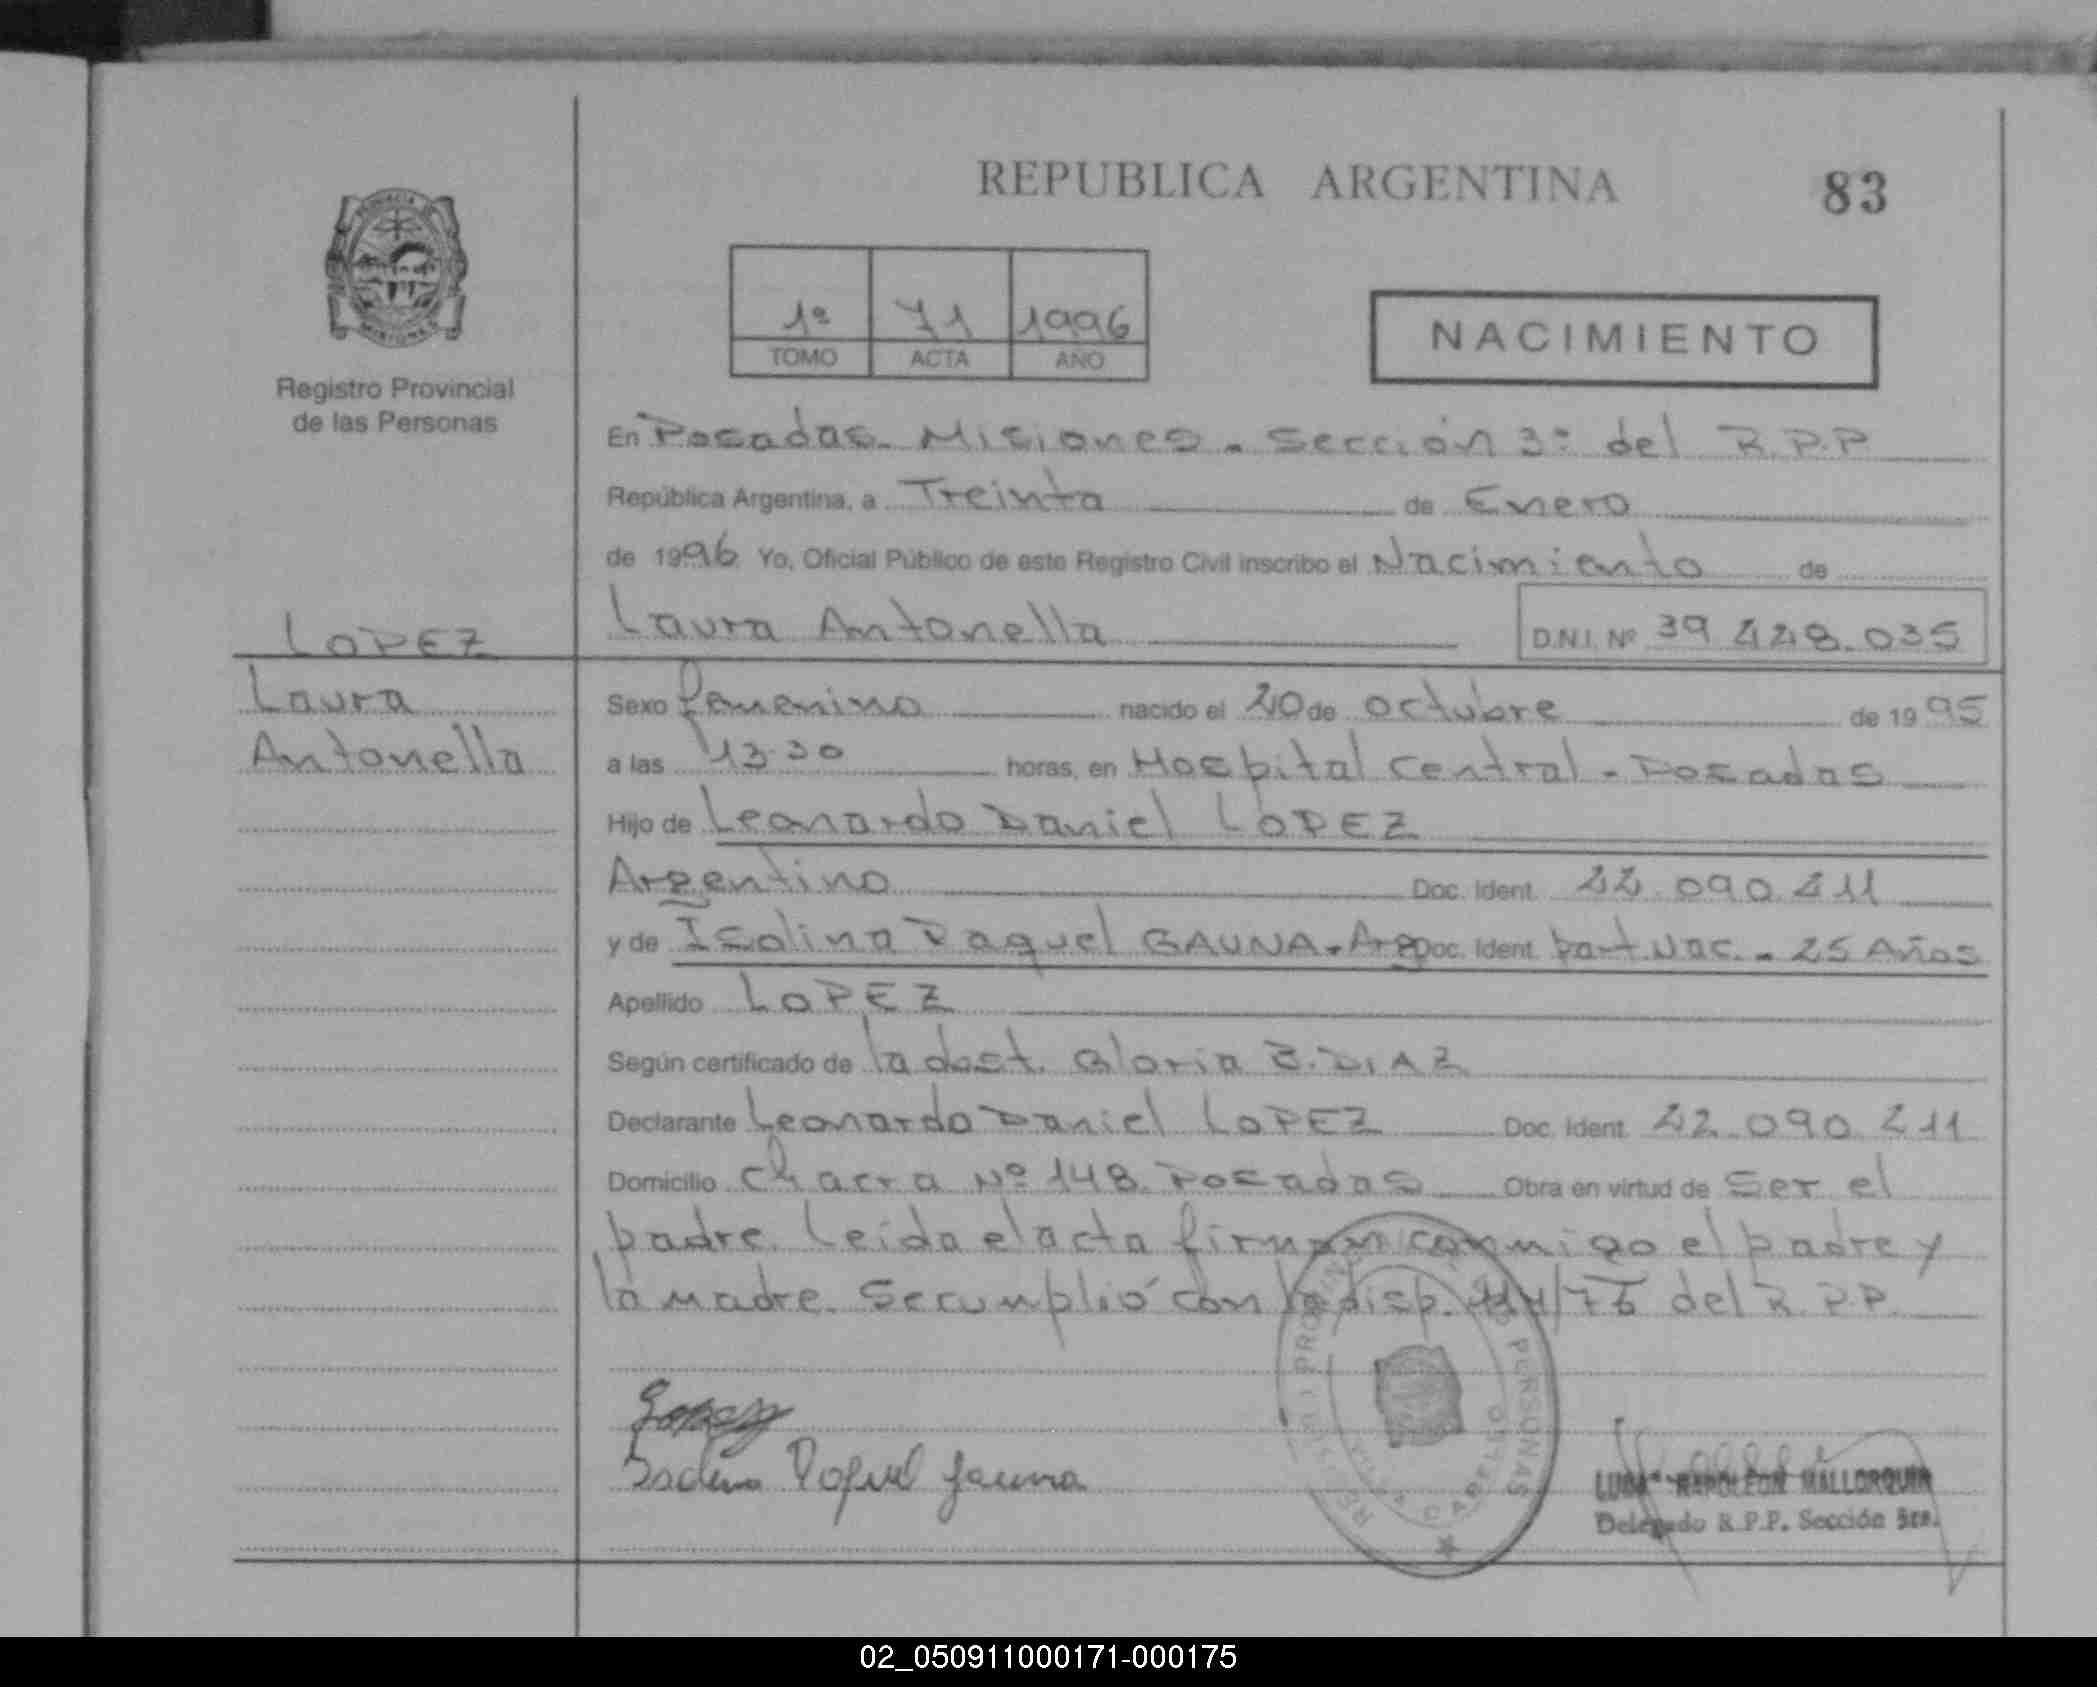 REPUBLICA ARGENTINA
83
PROVINCIA DE
MISIONES
Registro Provincial
de las Personas
1º 71 1996
TOMO ACTA AÑO
NACIMIENTO
En Posadas. Misiones. Sección 3º del R.P.P
República Argentina, a Treinta de Enero
de 1996 Yo, Oficial Público de este Registro Civil inscribo el Nacimiento de
LOPEZ
Laura
Antonella
Laura Antonella D.N.I. Nº 39 448.035
Sexo femenino nacido el 20 de octubre de 1995
a las 13 30 horas, en Hospital Central - Posadas
Hijo de Leonardo Daniel LOPEZ
Argentino Doc. Ident. 22.090.211
y de Isolina Raquel GAUNA. Arg Doc. Ident. part. Nac. - 25 Años
Apellido LOPEZ
Según certificado de la dost. Gloria B. DIAZ
Declarante Leonardo Daniel LOPEZ Doc. Ident. 22.090.211
Domicilio Chacra Nº 148. Posadas Obra en virtud de Ser el
padre. Leida el acta firman conmigo el padre y
la madre. Se cumplió con la disp. del R.P.P.
Raquel Gauna
NAPOLEON MALLORQUIN
Delegado R.P.P. Sección 3ra.
02_050911000171-000175